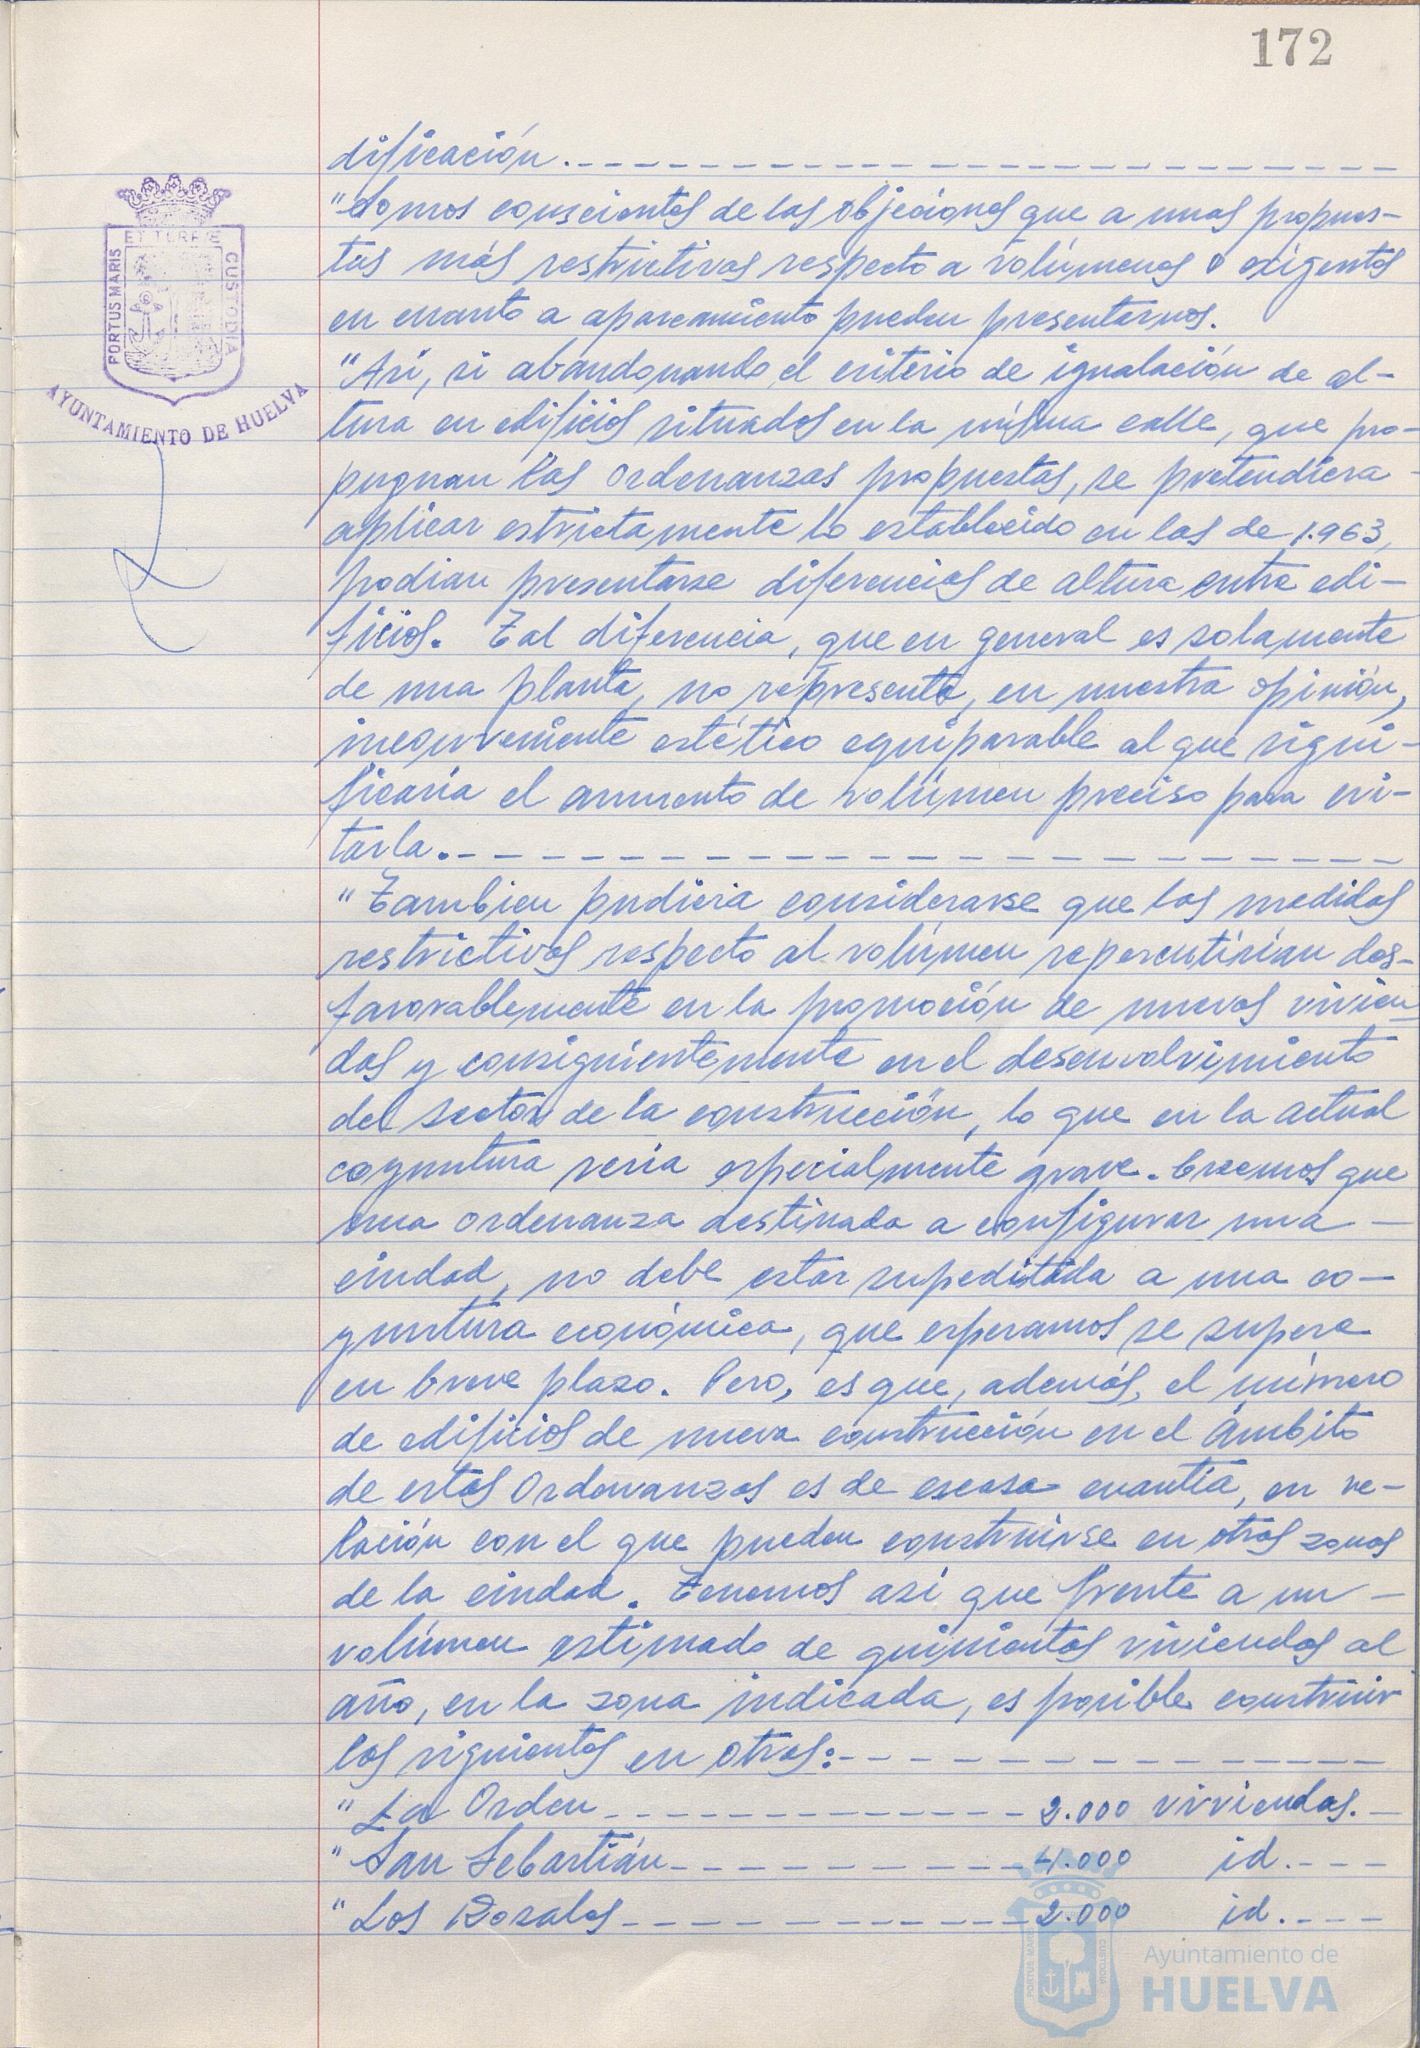 172
dificación.
"Somos conscientes de las objeciones que a unas propues-
tas más restrictivas respecto a volúmenes o exigentes
en cuanto a aparcamiento pueden presentarnos.
"Así, si abandonando el criterio de igualación de al-
tura en edificios situados en la misma calle, que pro-
pugnan las Ordenanzas propuestas, se pretendiera
aplicar estrictamente lo establecido en las de 1.963,
podian presentarse diferencias de altura entre edi-
ficios. Tal diferencia, que en general es solamente
de una planta, no representa, en nuestra opinión,
inconveniente estético equiparable al que signi-
ficaría el aumento de volúmen preciso para evi-
tarla.
"Tambien pudiera considerarse que las medidas
restrictivas respecto al volúmen repercutirian des-
favorablemente en la promoción de nuevas vivien-
das y consiguientemente en el desenvolvimiento
del sector de la construcción, lo que en la actual
coyuntura sería especialmente grave. Creemos que
una ordenanza destinada a configurar una
ciudad, no debe estar supeditada a una co-
yuntura económica, que esperamos se supere
en breve plazo. Pero, es que, además, el número
de edificios de nueva construcción en el ámbito
de estas Ordenanzas es de escasa cuantía, en re-
lación con el que pueden construirse en otras zonas
de la ciudad. Tenemos así que frente a un
volúmen estimado de quinientas viviendas al
año, en la zona indicada, es posible construir
las siguientes en otras:
"La Orden 2.000 viviendas.
"San Sebastián 4.000 id.
"Los Rosales 2.000 id.
PORTUS MARIS
ET TERRAE
CUSTODIA
AYUNTAMIENTO DE HUELVA
PORTUS MARIS
CUSTODIA
Ayuntamiento de
HUELVA